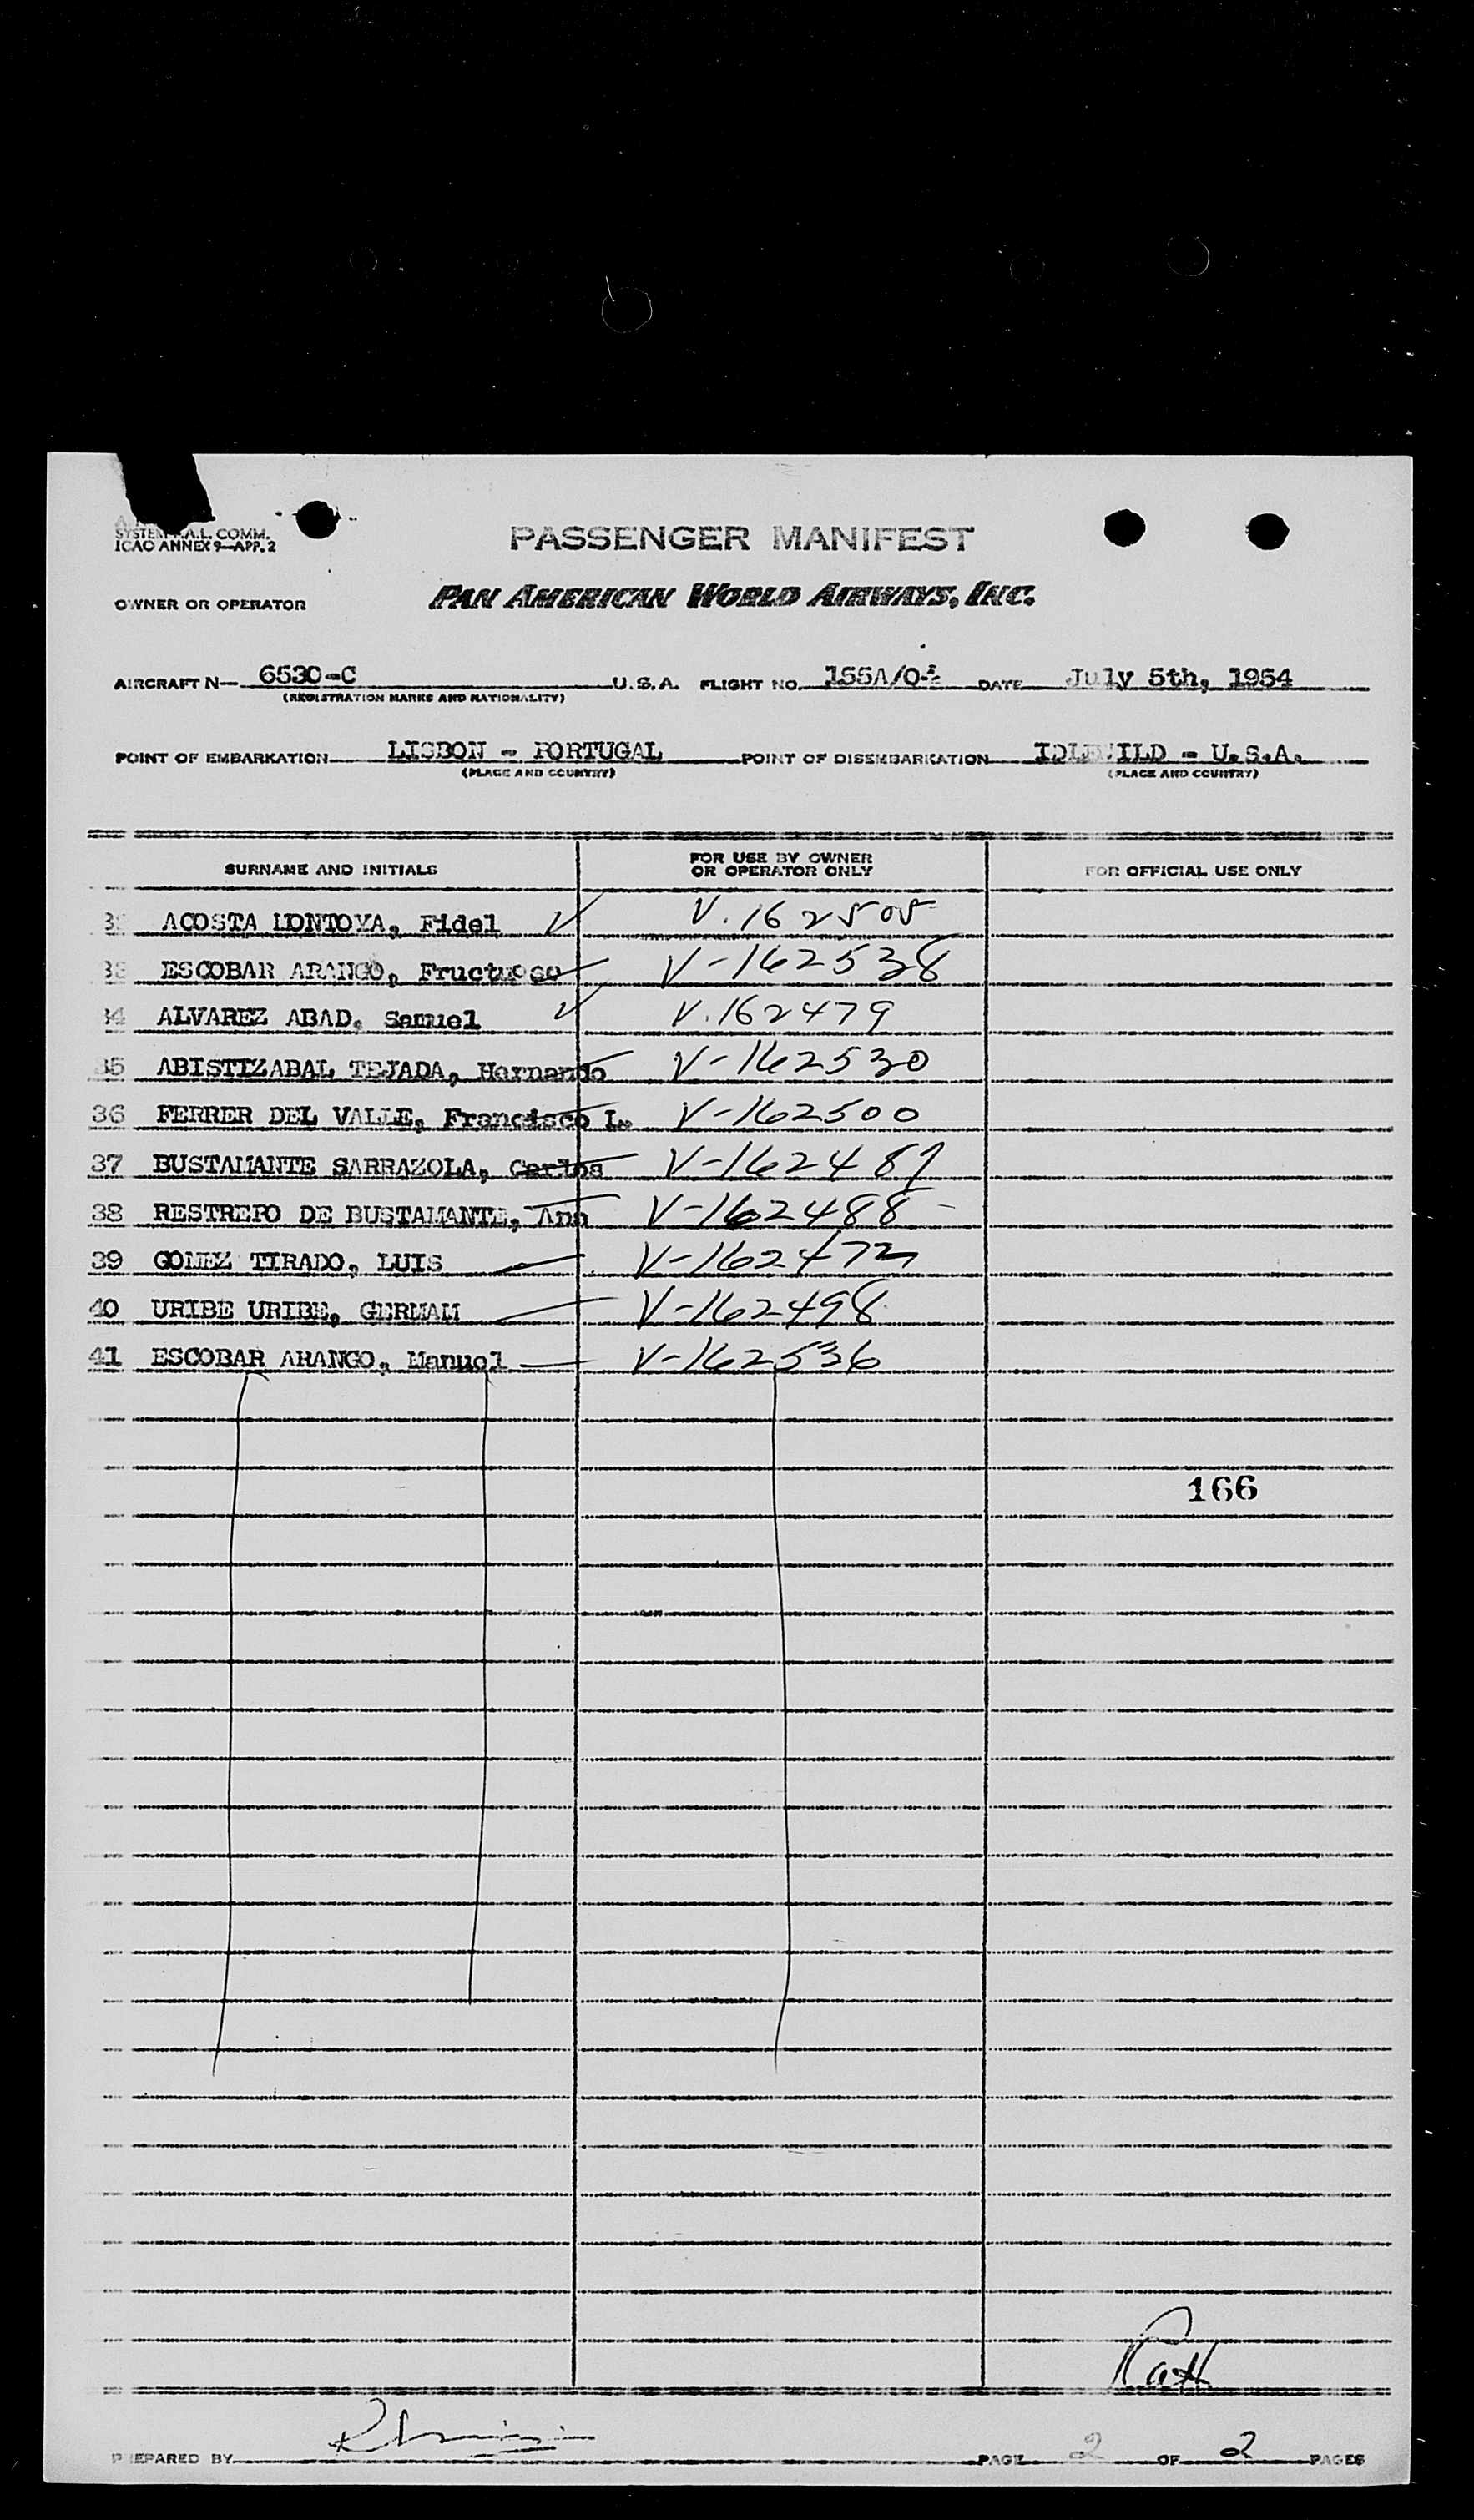 SYSTEM A.L. COMM.
ICAO ANNEX 9—APP. 2
PASSENGER MANIFEST
OWNER OR OPERATOR PAN AMERICAN WORLD AIRWAYS, INC.
AIRCRAFT N— 6530-C U.S.A. FLIGHT NO. 155A/04 DATE July 5th, 1954
(REGISTRATION MARKS AND NATIONALITY)
POINT OF EMBARKATION LISBON - PORTUGAL POINT OF DISEMBARKATION IDLEWILD - U.S.A.
(PLACE AND COUNTRY) (PLACE AND COUNTRY)
SURNAME AND INITIALS FOR USE BY OWNER OR OPERATOR ONLY FOR OFFICIAL USE ONLY
ACOSTA MONTOYA, Fidel V. 162505
33 ESCOBAR ARANGO, Fructuoso V-162538
34 ALVAREZ ABAD, Samuel V. 162479
35 ABISTIZABAL TEJADA, Hernando V-162530
36 FERRER DEL VALLE, Francisco L. V-162500
37 BUSTAMANTE SARRAZOLA, Carlos V-162489
38 RESTREPO DE BUSTAMANTE, Ana V-162488
39 GOMEZ TIRADO, LUIS V-162472
40 URIBE URIBE, GERMAM V-162498
41 ESCOBAR ARANGO, Manuel V-162536
166
PREPARED BY PAGE 2 OF 2 PAGES